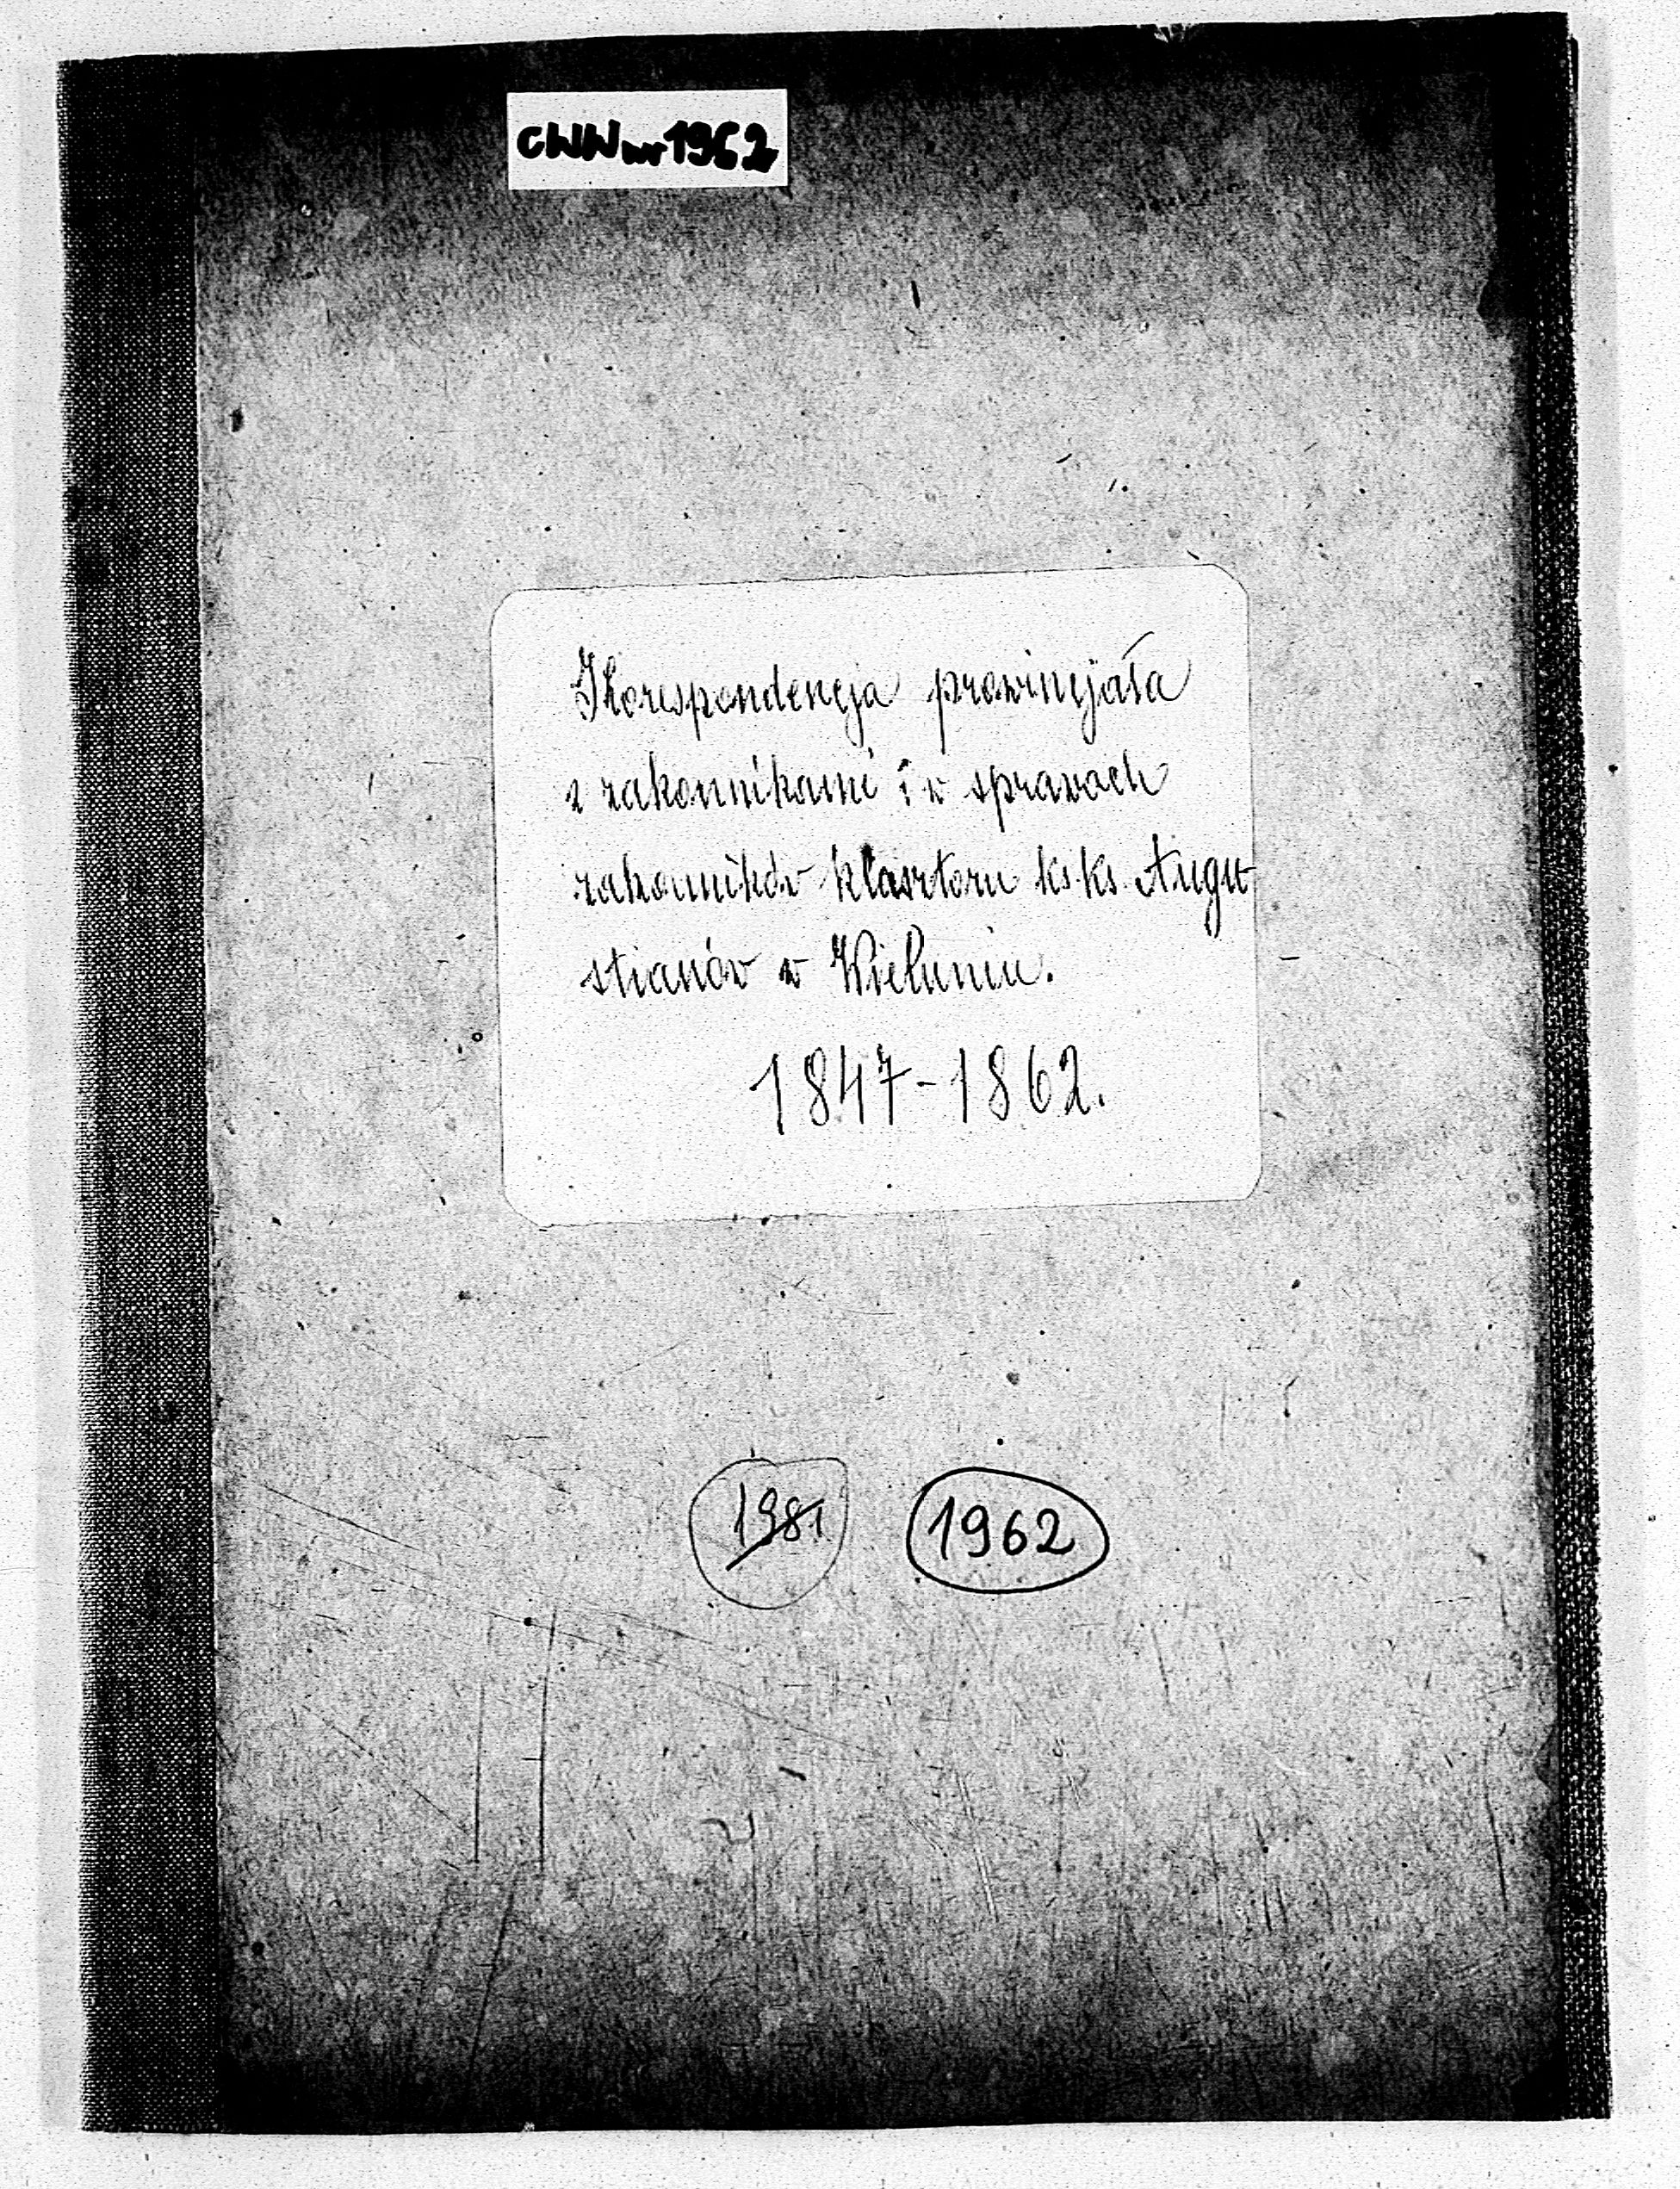 CWW nr 1962
Korespondencja prowincjała
z zakonnikami i w sprawach
zakonników klasztoru ks. ks. Augu-
stianów w Wieluniu.
1847-1862.
1981 1962